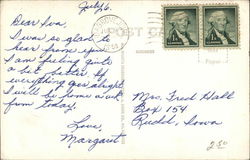 July 6.
Dear Eva,
I was so glad to
hear from you.
I am feeling quite
a bit better. If
everything goes alright
I will be home a week
from today.
Love,
Margaret
POST CARD
Mrs. Fred Hall
Box 154
Iowa
2.50